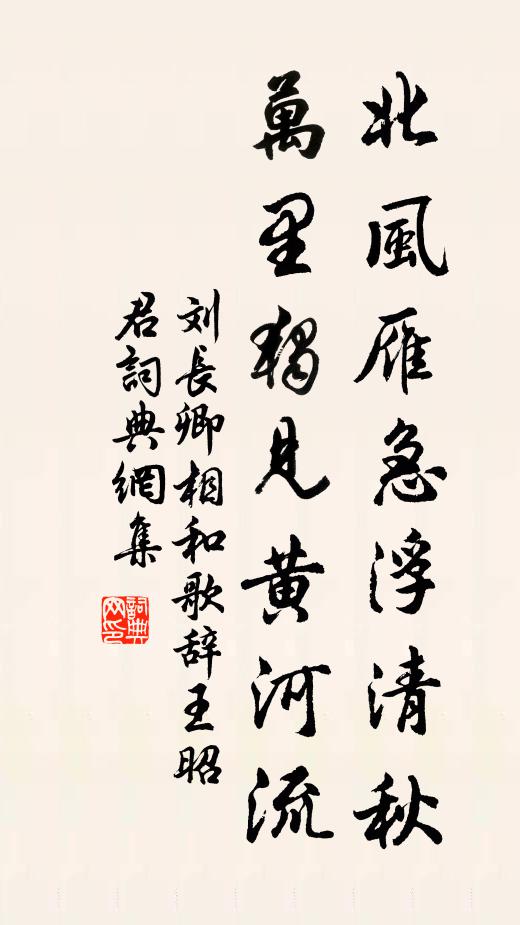 北風雁急浮清秋
萬里獨見黃河流
刘長卿相和歌辞王昭
君詞典網集
詞典
网印